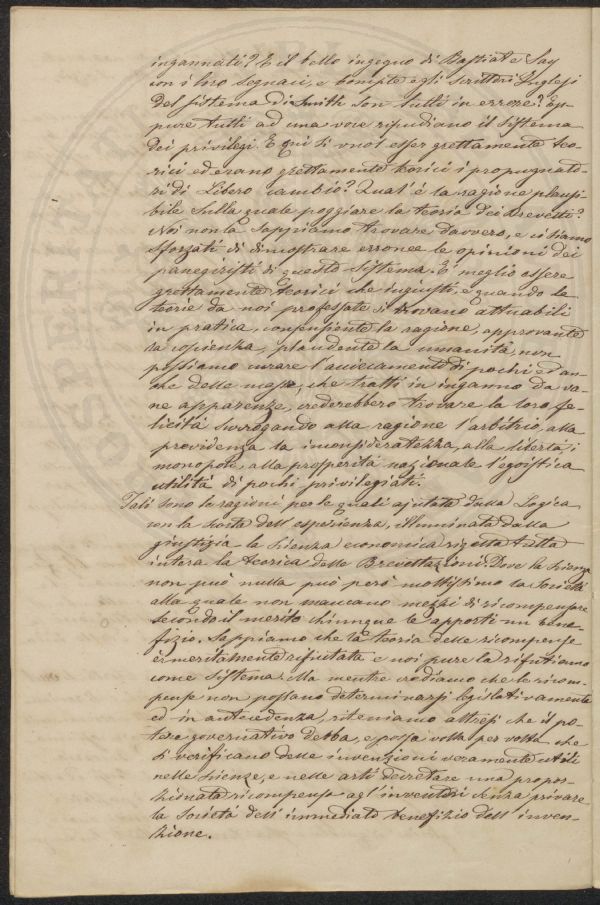 ingannati? E il bello ingegno di Bastiat e Say
con i loro seguaci, e tompte egli Scrittori Inglesi
del Sistema di Smith son tutti in errore? Ep-
pure tutti ad una voce ripudiano il Sistema
dei privilegi. E qui si vuol esser grettamente teo-
rici ed erano grettamente teorici i propugnato-
ri di Libero cambio? Qual'è la ragione plausi-
bile sulla quale poggiare la teoria dei Brevetti?
Noi non la sappiamo trovare davvero, e ci siamo
sforzati di dimostrare erronee le opinioni dei
panegiristi di questo Sistema. È meglio essere
grettamente teorici che ingiusti, e quando le
teorie da noi professate si trovano attuabili
in pratica, consenziente la ragione, approvante
la coscienza, plaudente la umanità, non
possiamo curare l'acciecamento di pochi ed an-
che delle masse, che tratti in inganno da va-
ne apparenze, crederebbero trovare la loro fe-
licità surrogando alla ragione l'arbitrio, alla
providenza la inconsideratezza, alla libertà i
monopoli, alla prosperità nazionale l'egoistica
utilità di pochi privilegiati.
Tali sono le ragioni per le quali ajutata dalla Logica
con la scorta dell'esperienza, illuminata dalla
giustizia la Scienza economica rigetta tutta
intera la teorica delle Brevettazioni. Dove la Scienza
non può nulla può però moltissimo la Società
alla quale non mancano mezzi di ricompensare
secondo il merito chiunque le apporti un bene-
fizio. Sappiamo che la teoria delle ricompense
è meritamente rifiutata e noi pure la rifiutiamo
come Sistema. Ma mentre crediamo che le ricom-
pense non possano determinarsi legislativamente
ed in antecedenza, riteniamo altresì che il po-
tere governativo debba, e possa volta per volta che
si verificano delle invenzioni veramente utili
nelle Scienze, e nelle arti decretare una propor-
zionata ricompensa agl'inventori senza privare
la Società dell'immediato benefizio dell'inven-
zione.